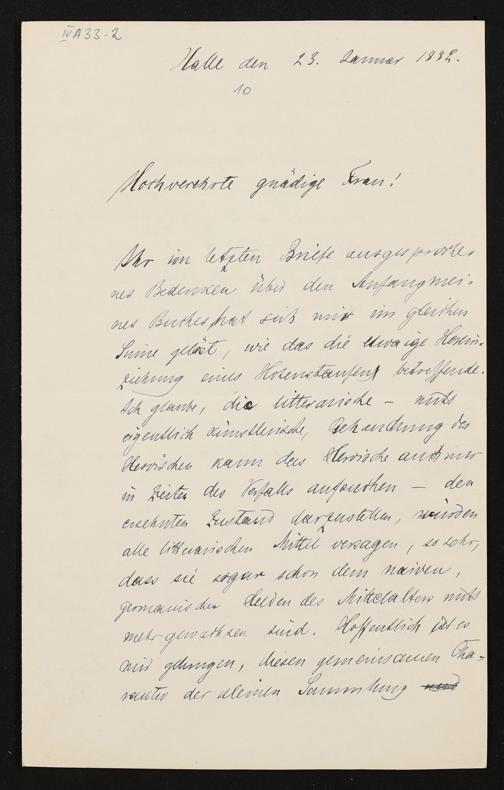 IV A 33-2
Halle den 23. Januar 1892.
10
Hochverehrte gnädige Frau!
Ihr im letzten Briefe ausgesproche-
nes Bedenken über den Anfang mei-
nes Buches hat sich mir im gleichen
Sinne gelöst, wie das die etwaige Herein-
ziehung eines Hohenstaufen betreffende.
Ich glaube, die litterarische – nicht
eigentlich künstlerische, Behandlung des
Heroischen kann das Heroische auch nur
in Zeiten des Verfalls aufsuchen – den
ersehnten Zustand darzustellen, würden
alle litterarischen Mittel versagen, so sehr,
dass sie sogar schon dem naiven,
germanischen Helden des Mittelalters nicht
mehr gewachsen sind. Hoffentlich ist es
mir gelungen, diesen gemeinsamen Cha-
rakter der kleinen Sammlung